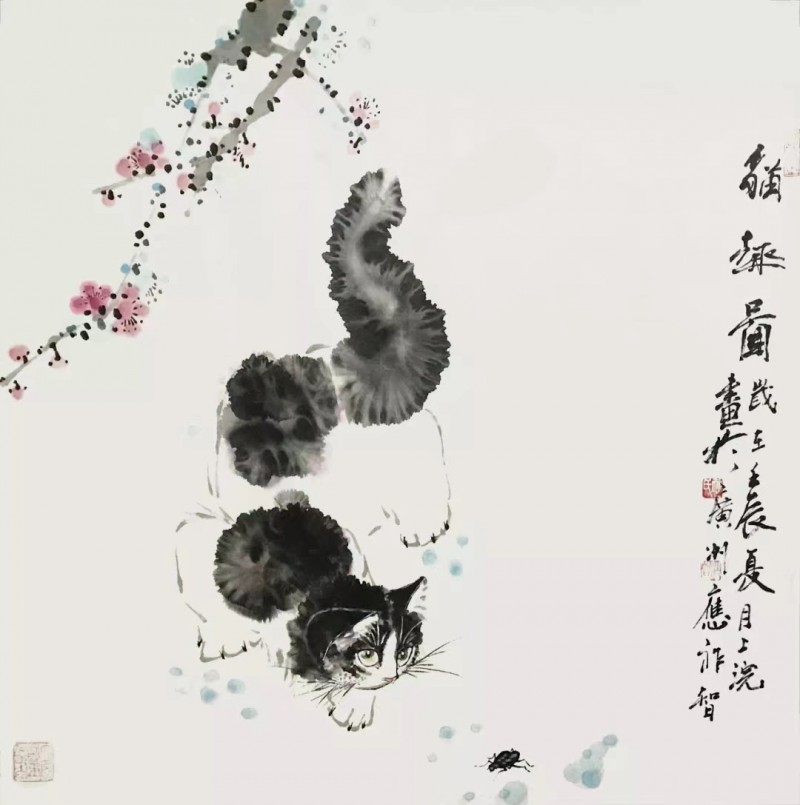 貓趣圖
歲在壬辰夏月上浣
畫於廣州應祚智